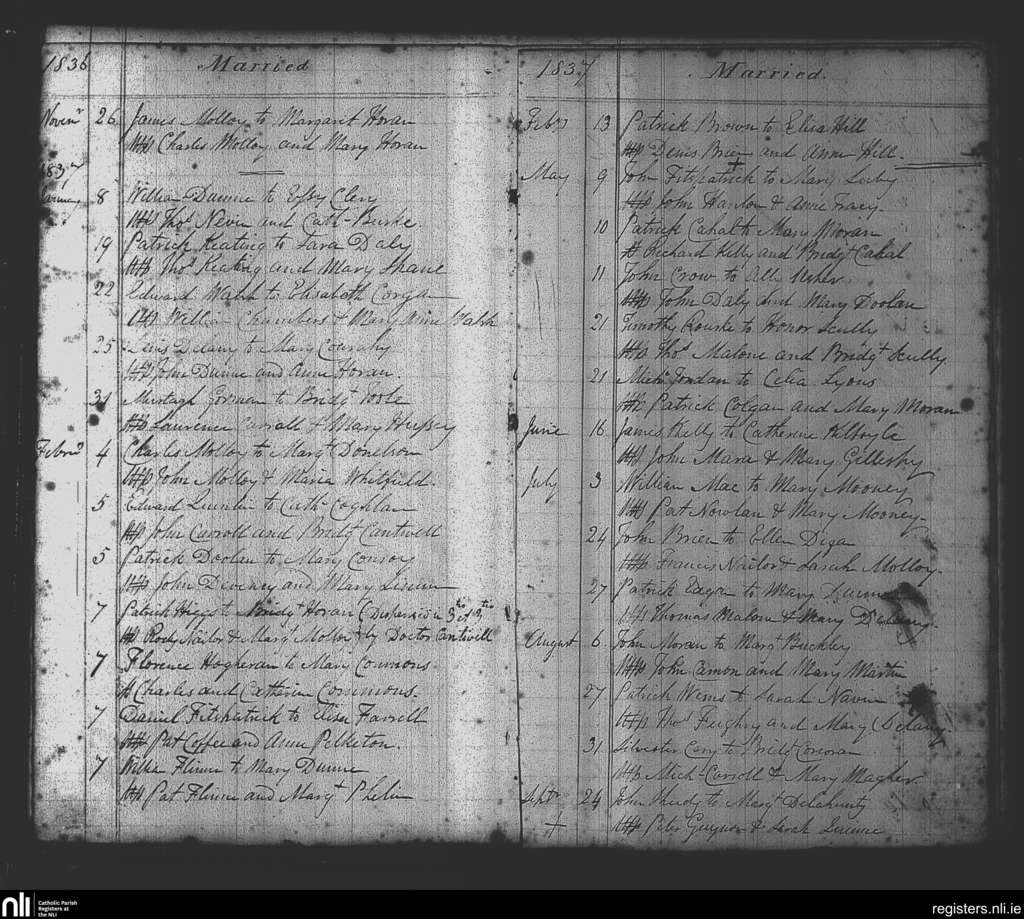 1836 Married
Novemr 26 James Molloy to Margaret Horan
Charles Molloy and Mary Horan
1837
8 William Dunne to Essy Clery
Thos Nevin and Cath Burke.
19 Patrick Keating to Sara Daly
Thos Keating and Mary Shane
22 Edward Walsh to Elisabeth Corgan
William Chambers & Mary Anne Walsh
25 Denis Delany to Mary Conrahy
John Dunne and Anne Horan.
31 Murtagh Gorman to Bridgt Toole
Laurence Carroll & Mary Hussey
4 Charles Molloy to Margt Donelson
John Molloy & Maria Whitfield.
5 Edward Quinlin to Cath Coghlan
John Carroll and Bridgt Cantwell
5 Patrick Doolan to Mary Conroy
John Deveney and Mary
7 Patrick Higgs to Bridgt Horan (Dispensed in
Nailor & Margt Molloy by Doctor Cantwell
7 Florence Hogheran to Mary Commons.
Charles and Catherine Commons.
7 Daniel Fitzpatrick to Eliza Farrell
Pat Coffee and Anne Pelketon.
7 William Flinne to Mary Dunne
Pat Flinne and Margt Phelin
1837 Married.
Feby 13 Patrick Brown to Elisa Hill
Denis Brien and Anne Hill.
May 9 John Fitzpatrick to Mary
John Hanlon & Anne Tracy.
10 Patrick Cahal to Mary Moran
Richard Kelly and Bridgt Cahal
11 John Crow to
John Daly and Mary Doolan
21 Timothy Rourke to Honor Scully
Thos Malone and Bridgt Scully
21 Michl Jordan to Celia Lyons
Patrick Colgan and Mary Moran
June 16 James Kelly to Catherine Kilboyle
John Mara & Mary Gillesby
July 3 William Mac to Mary Mooney
Pat Nowlan & Mary Mooney.
24 John Brien to Ellen Digan
Francis Nailor & Sarah Molloy.
27 Patrick Eagan to Mary
Thomas Malone & Mary Delany.
August 6 John Moran to Margt Buckley
John Eamon and Mary Martin
27 Patrick to Sarah Navin
Thos Feighry and Mary Delany.
31 Silvester to Bridgt Conoran
Michl Carroll & Mary Magher
Septr 24 John to Margt Delahunty
Peter & Sarah
nli
Catholic Parish
Registers at
the NLI
registers.nli.ie